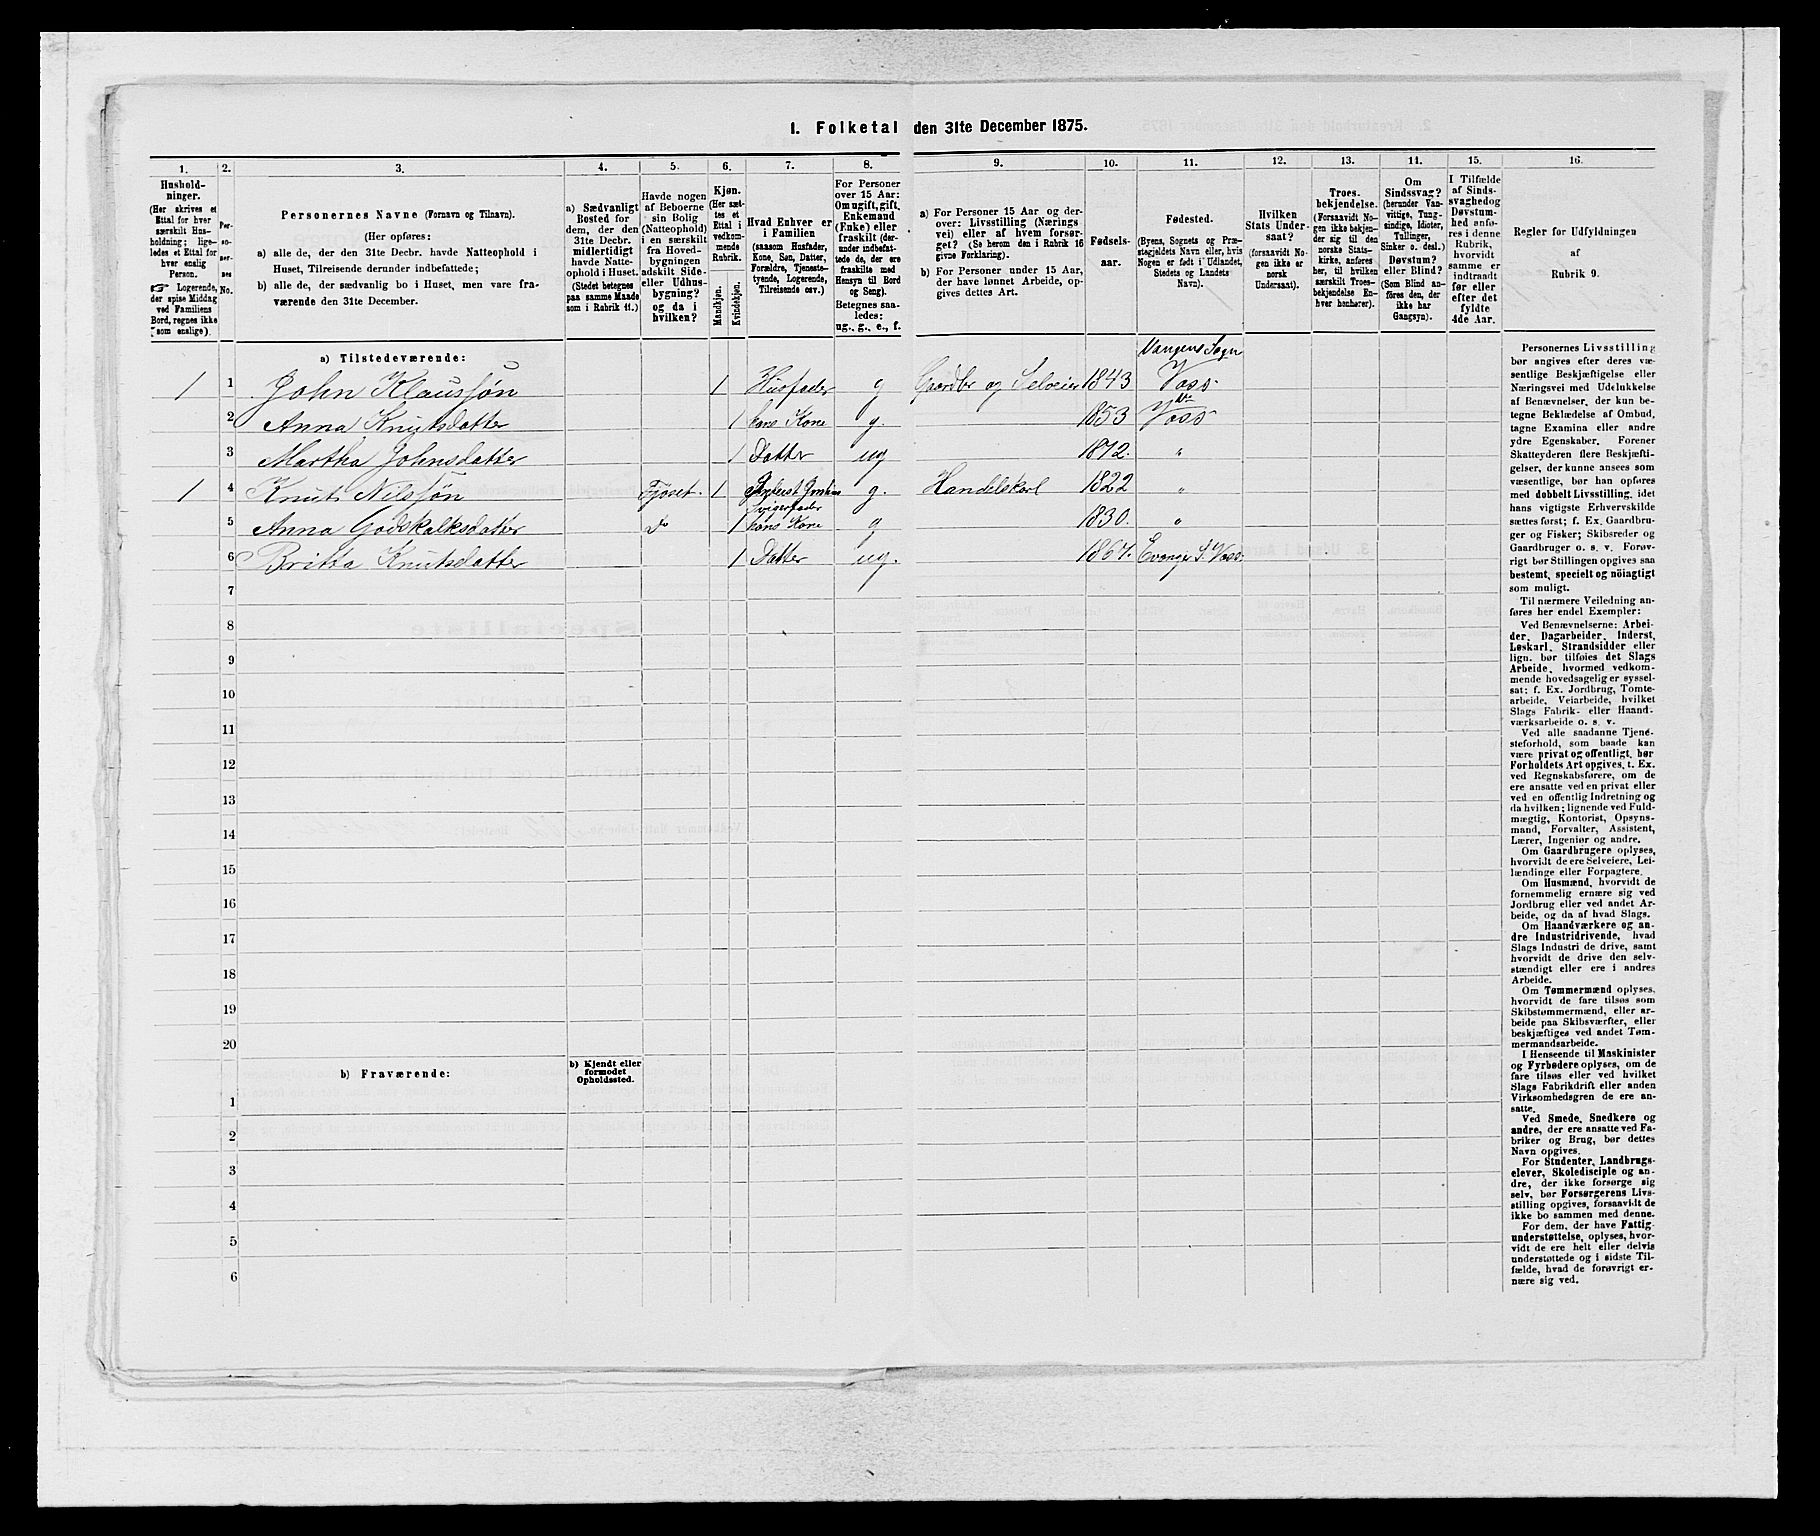 1. Folketal den 31te December 1875.
1. 2. 3. 4. 5. 6. 7. 8. 9. 10. 11. 12. 13. 14. 15. 16.
Hushold-
ninger.
(Her skrives et
Ettal for hver
særskilt Hus-
holdning; lige-
ledes et Ettal for
hver enslig
Person.
☞ Logerende,
der spise Middag
ved Familiens
Bord, regnes ikke
som enslige).
Per-
so-
ner-
nes
No.
Personernes Navne (Fornavn og Tilnavn).
(Her opføres:
a) alle de, der den 31te Decbr. havde Natteophold i
Huset, Tilreisende derunder indbefattede;
b) alle de, der sædvanlig bo i Huset, men vare fra-
værende den 31te December.
a) Sædvanligt
Bosted for
dem, der den
31te Decbr.
midlertidigt
havde Natte-
ophold i Huset.
(Stedet betegnes
paa samme Maade
som i Rubrik 11.)
Havde nogen
af Beboerne
sin Bolig
(Natteophold)
i en særskilt
fra Hoved-
bygningen
adskilt Side-
eller Udhus-
bygning?
og da i
hvilken?
Kjøn.
(Her sæt-
tes et
Ettal i
vedkom-
mende
Rubrik.
Mandkjøn.
Kvindekjøn.
Hvad Enhver er
i Familien
(saasom Husfader,
Kone, Søn, Datter,
Forældre, Tjeneste-
tyende, Logerende,
Tilreisende osv.)
For Personer
over 15 Aar:
Om ugift, gift,
Enkemand
(Enke) eller
fraskilt (der-
under indbefat-
tede de, der ere
fraskilte med
Hensyn til Bord
og Seng).
Betegnes saa-
ledes:
ug., g., e., f.
a) For Personer 15 Aar og der-
over: Livsstilling (Nærings-
vei) eller af hvem forsør-
get? (Se herom den i Rubrik 16
givne Forklaring).
b) For Personer under 15 Aar,
der have lønnet Arbeide, op-
gives dettes Art.
Fødsels-
aar.
Fødested.
(Byens, Sognets og Præ-
stegjeldets Navn eller, hvis
Nogen er født i Udlandet,
Stedets og Landets
Navn).
Hvilken
Stats Under-
saat?
(forsaavidt No-
gen ikke er
norsk
Undersaat).
Troes-
bekjendelse.
(Forsaavidt No-
gen ikke bekjen-
der sig til den
norske Stats-
kirke, anføres
her, til hvilken
særskilt Troes-
bekjendelse En-
hver henhører).
Om
Sindssvag?
(herunder Van-
vittige, Tung-
sindige, Idioter,
Tullinger,
Sinker o. desl.)
Døvstum?
eller Blind?
(Som Blind an-
føres den, der
ikke har
Gangsyn).
I Tilfælde
af Sinds-
svaghed og
Døvstum-
hed anfø-
res i denne
Rubrik,
hvorvidt
samme er
indtraadt
før eller
efter det
fyldte
4de Aar.
Regler for Udfyldningen
af
Rubrik 9.
a) Tilstedeværende:
Vangens Sogn
1 1 John Klaussøn 1 Husfader g Gaardbr og Selveier 1843 Voss
2 Anna Knutsdatter 1 hans Kone g. 1853 Do Voss
3 Martha Johnsdatter 1 Datter ug 1872. "
1 4 Knut Nilssøn Fjoset. 1 g. Handelskarl 1822 "
Svigerfader
5 Anna Godskalksdatter Do 1 hans Kone g 1830. "
6 Britta Knutsdatter 1 Datter ug. 1864. Evanger S. Voss.
7
8
9
10
11
12
13
14
15
16
17
18
19
20
b) Fraværende:
b) Kjendt eller
formodet
Opholdssted.
1
2
3
4
5
6
Personernes Livsstilling
bør angives efter deres væ-
sentlige Beskjæftigelse eller
Næringsvei med Udelukkelse
af Benævnelser, der kun be-
tegne Beklædelse af Ombud,
tagne Examina eller andre
ydre Egenskaber. Forener
Skatteyderen flere Beskjæfti-
gelser, der kunne ansees som
væsentlige, bør han opføres
med dobbelt Livsstilling, idet
hans vigtigste Erhvervskilde
sættes først; f. Ex. Gaardbru-
ger og Fisker; Skibsreder og
Gaardbruger o. s. v. Forøv-
rigt bør Stillingen opgives saa
bestemt, specielt og nöiagtigt
som muligt.
Til nærmere Veiledning an-
føres her endel Exempler:
Ved Benævnelserne: Arbei-
der, Dagarbeider, Inderst,
Løskarl, Strandsidder eller
lign. bør tilføies det Slags
Arbeide, hvormed vedkom-
mende hovedsagelig er syssel-
sat; f. Ex. Jordbrug, Tomte-
arbeide, Veiarbeide, hvilket
Slags Fabrik- eller Haand-
værksarbeide o. s. v.
Ved alle saadanne Tjene-
steforhold, som baade kan
være privat og offentligt, bør
Forholdets Art opgives, t. Ex.
ved Regnskabsførere, om de
ere ansatte ved en privat eller
ved en offentlig Indretning og
da hvilken; lignende ved Fuld-
mægtig, Kontorist, Opsyns-
mand, Forvalter, Assistent,
Lærer, Ingeniør og andre.
Om Gaardbrugere oplyses,
hvorvidt de ere Selveiere, Lei-
lændinge eller Forpagtere.
Om Husmænd, hvorvidt de
fornemmelig ernære sig ved
Jordbrug eller ved andet Ar-
beide, og da af hvad Slags.
Om Haandværkere og an-
dre Industridrivende, hvad
Slags Industri de drive, samt
hvorvidt de drive den selv-
stændigt eller ere i andres
Arbeide.
Om Tømmermænd oplyses,
hvorvidt de fare tilsøs som
Skibstømmermænd, eller ar-
beide paa Skibsværfter, eller
beskjæftiges ved andet Tøm-
mermandsarbeide.
I Henseende til Maskinister
og Fyrbødere oplyses, om de
fare tilsøs eller ved hvilket
Slags Fabrikdrift eller anden
Virksomhedsgren de ere an-
satte.
Ved Smede, Snedkere og
andre, der ere ansatte ved Fa-
briker og Brug, bør dettes
Navn opgives.
For Studenter, Landbrugs-
elever, Skoledisciple og an-
dre, der ikke forsørge sig
selv, bør Forsørgerens Livs-
stilling opgives, forsaavidt de
ikke bo sammen med denne.
For dem, der have Fattig-
understøttelse, oplyses, hvor-
vidt de ere helt eller delvis
understøttede og i sidste Til-
fælde, hvad de forøvrigt er-
nære sig ved.